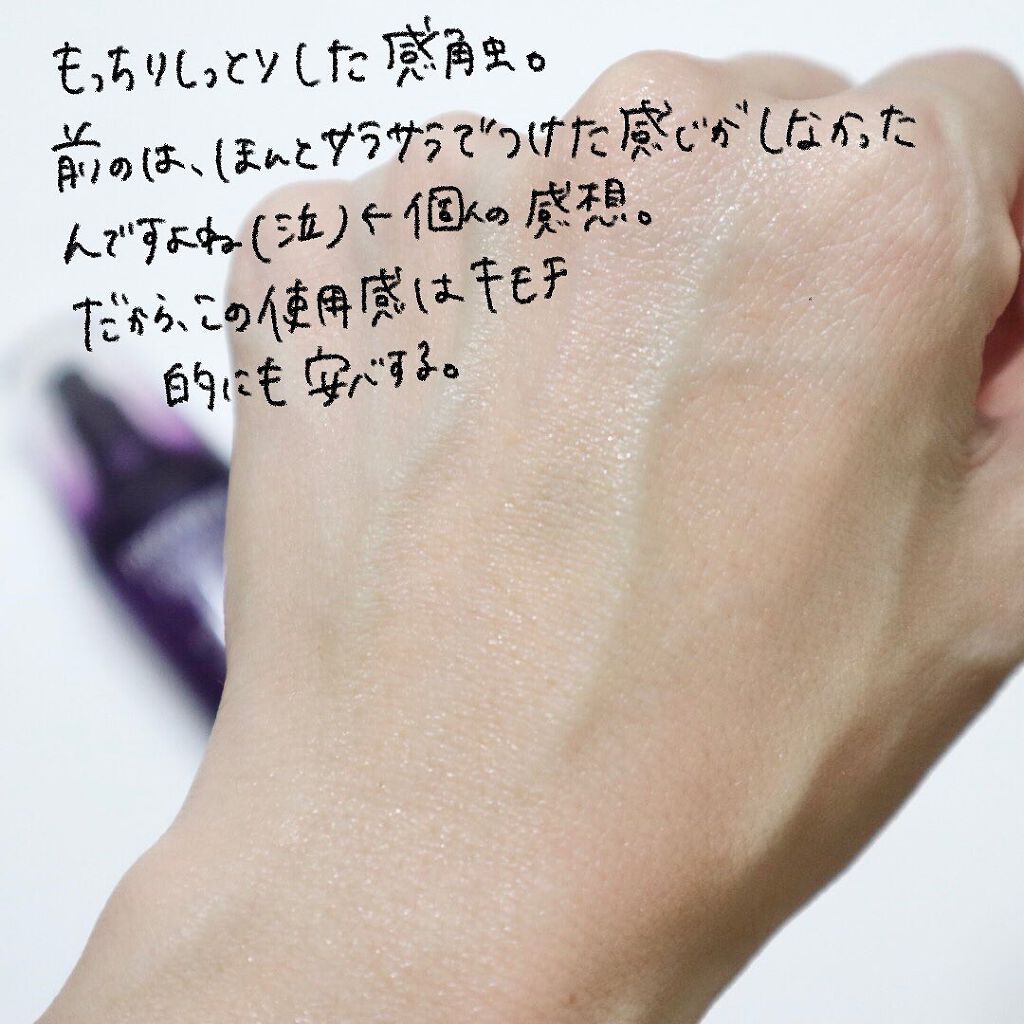 もっちりしっとりした感触。
前のは、ほんとサラサラでつけた感じがしなかった
んですよね(泣)←個人の感想。
だから、この使用感はキモチ
的にも安心する。